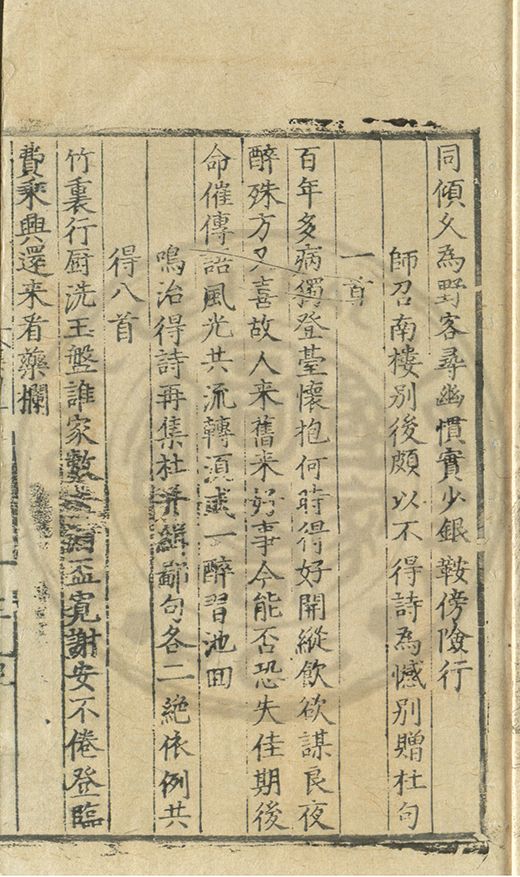 同傾久為野客尋幽慣實少銀鞍傍險行
師召南樓別後頗以不得詩為憾別贈杜句
一首
百年多病獨登臺懷抱何時得好開縱飲欲謀良夜
醉殊方又喜故人来舊来好事今能否恐失佳期後
命催傳語風光共流轉須成一醉習池囬
鳴治得詩再集杜并緝鄙句各二絶依例共
得八首
竹裏行厨洗玉盤誰家數酒盃寛謝安不倦登臨
費乘興還来看藥欄